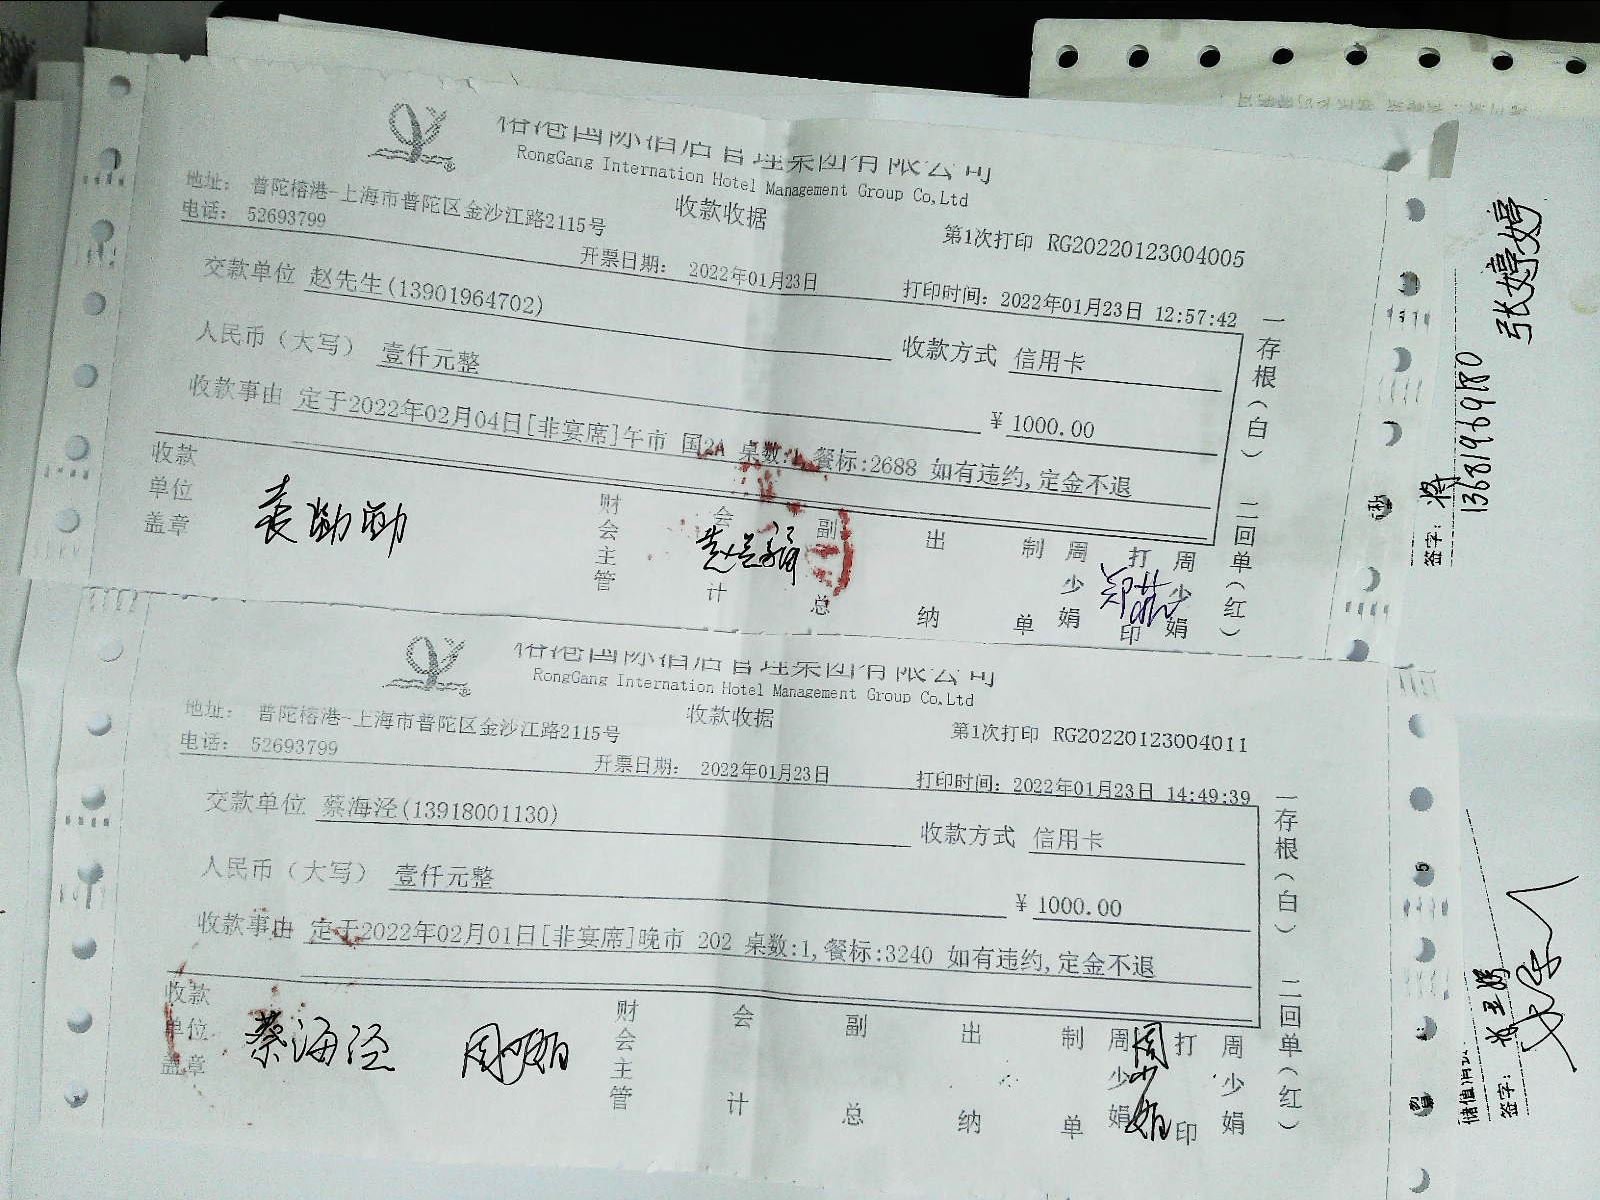 榕港国际酒店管理集团有限公司
RongGang Internation Hotel Management Group Co,Ltd
地址： 普陀榕港-上海市普陀区金沙江路2115号
收款收据
电话： 52693799
第1次打印 RG20220123004005
开票日期： 2022年01月23日
打印时间：2022年01月23日 12:57:42
交款单位 赵先生(13901964702)
收款方式 信用卡
人民币（大写） 壹仟元整
¥ 1000.00
收款事由 定于2022年02月04日[非宴席]午市 国2A 桌数:1,餐标:2688 如有违约,定金不退
收款单位盖章
财会主管
会计
副总
出纳
制单
周少娟
打印
周少娟
一存根（白） 二回单（红）
榕港国际酒店管理集团有限公司
RongGang Internation Hotel Management Group Co,Ltd
地址： 普陀榕港-上海市普陀区金沙江路2115号
收款收据
电话： 52693799
第1次打印 RG20220123004011
开票日期： 2022年01月23日
打印时间：2022年01月23日 14:49:39
交款单位 蔡海泾(13918001130)
收款方式 信用卡
人民币（大写） 壹仟元整
¥ 1000.00
收款事由 定于2022年02月01日[非宴席]晚市 202 桌数:1,餐标:3240 如有违约,定金不退
收款单位盖章
蔡海泾
财会主管
会计
副总
出纳
制单
周少娟
周少娟
打印
周少娟
一存根（白） 二回单（红）
张婷婷
13681969180
签字：
签字：